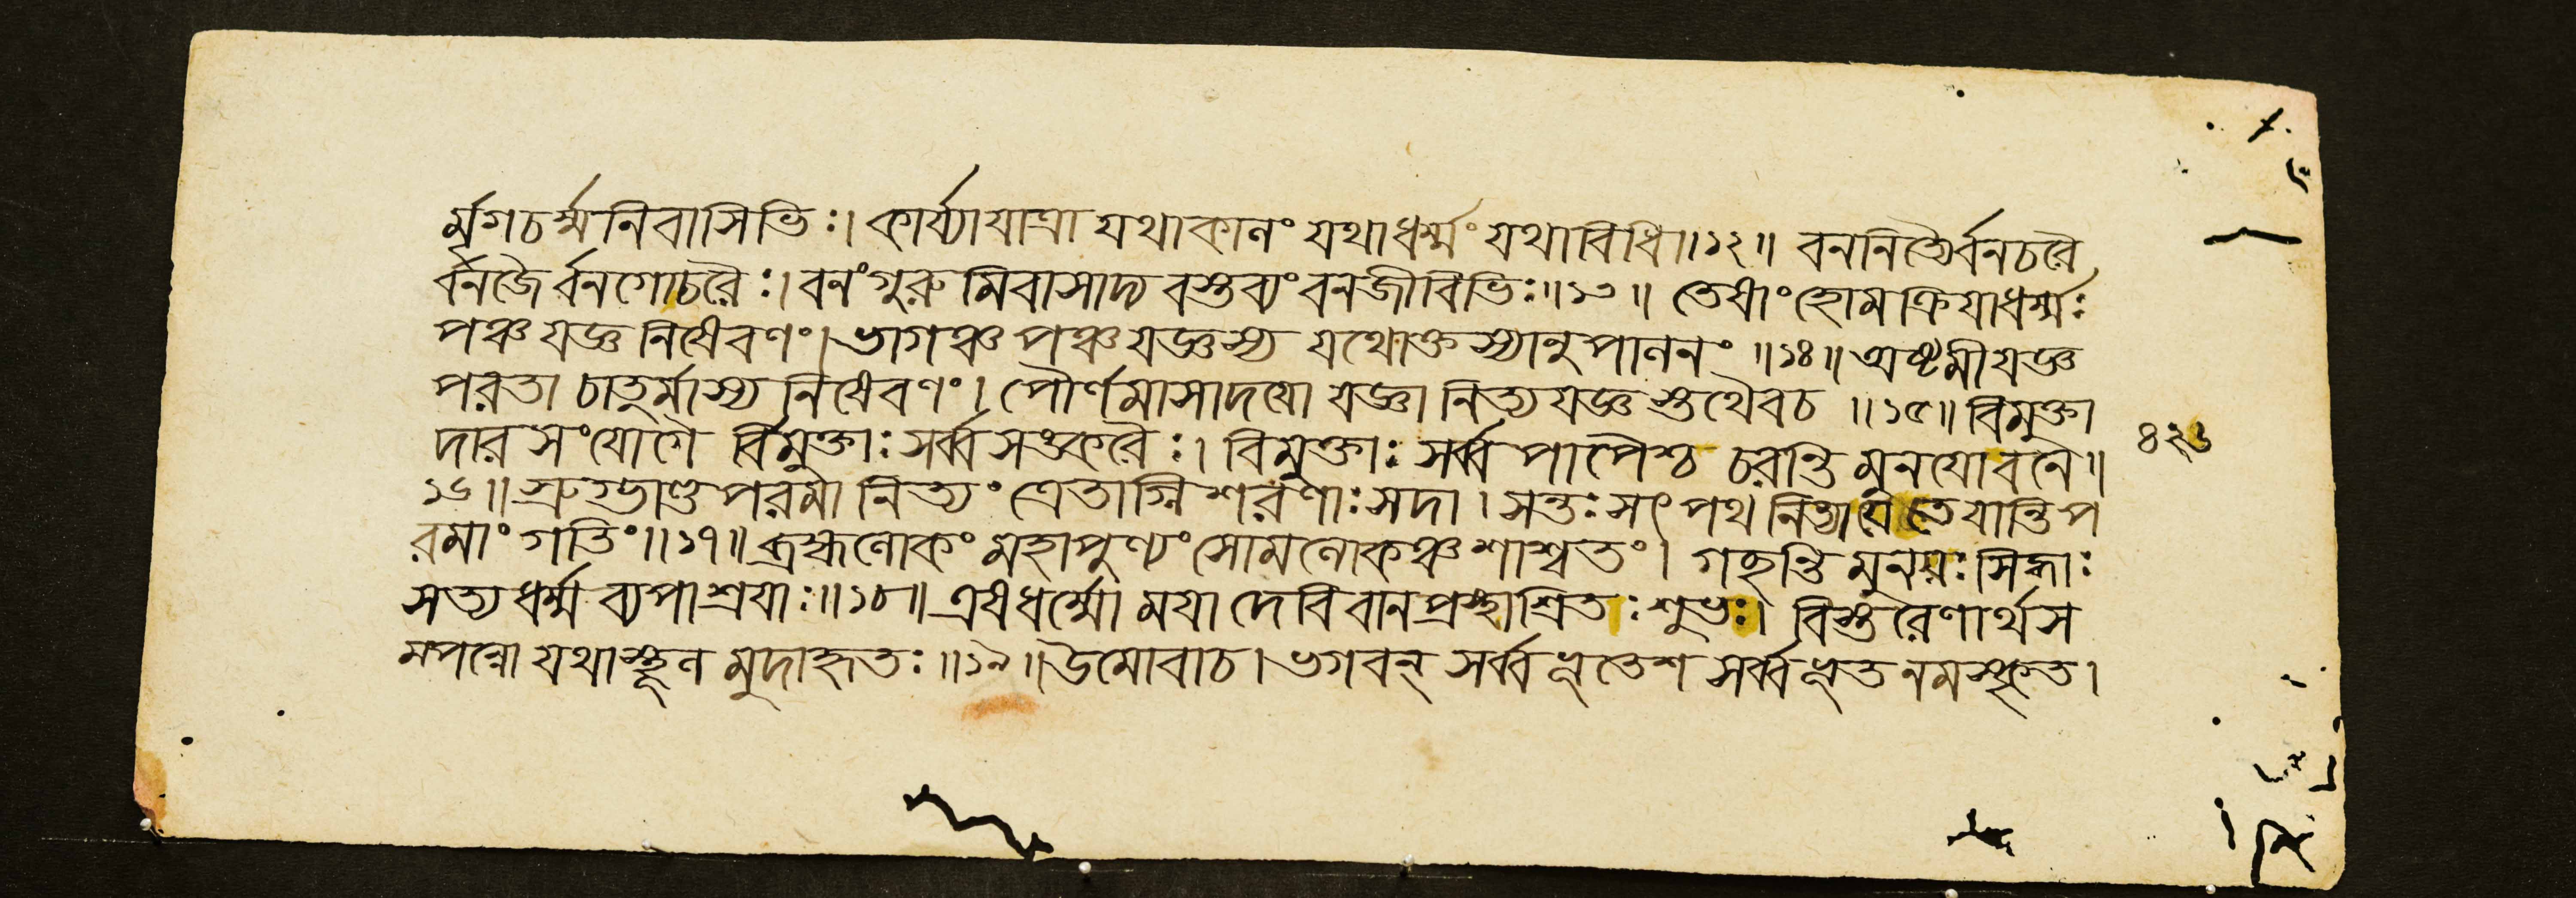 র্মৃগচর্ম্মনিবাসিভিঃ। কার্য্যাযাত্রা যথাকালং যথাধর্ম্মং যথাবিধি॥১২॥ বননিত্যৈর্বনচরৈ
র্বনজৈর্বনগোচরৈঃ। বনংগুরুমিবাসাদ্য বস্তব্যং বনজীবিভিঃ॥১৩॥ তেষাংহোমক্রিযাধর্ম্মঃ
পঞ্চযজ্ঞনিষেবণং। ভাগঞ্চ পঞ্চযজ্ঞস্য যথোক্তস্যানুপালনং॥১৪॥ অষ্টমীযজ্ঞ
পরতা চাতুর্মাস্যনিষেবণং। পৌর্ণমাসাদযো যজ্ঞা নিত্যযজ্ঞস্তথৈবচ॥১৫॥ বিমুক্তা
দারসংযোগৈ র্বিমুক্তাঃ সর্ব্বসঙ্করৈঃ। বিমুক্তাঃ সর্ব্বপাপৈশ্চ চরন্তি মুনযোবনে॥
৪২৬
১৬॥ স্রুগ্ভাণ্ডপরমা নিত্যং ত্রেতাগ্নিশরণাঃ সদা। সন্তঃ সৎপথনিত্যাযে তেযান্তি প
রমাং গতিং॥১৭॥ ব্রহ্মলোকং মহাপুণ্যং সোমলোকঞ্চ শাশ্বতং। গছন্তি মুনয়ঃ সিদ্ধাঃ
সত্যধর্ম্মব্যপাশ্রযাঃ॥১৮॥ এষধর্ম্মো মযা দেবি বানপ্রস্থাশ্রিতঃ শুভঃ। বিস্তরেণার্থস
ম্পন্নো যথাস্থূল মুদাহৃতঃ॥১৯॥ উমোবাচ। ভগবন্ সর্ব্বভূতেশ সর্ব্বভূতনমস্কৃত।